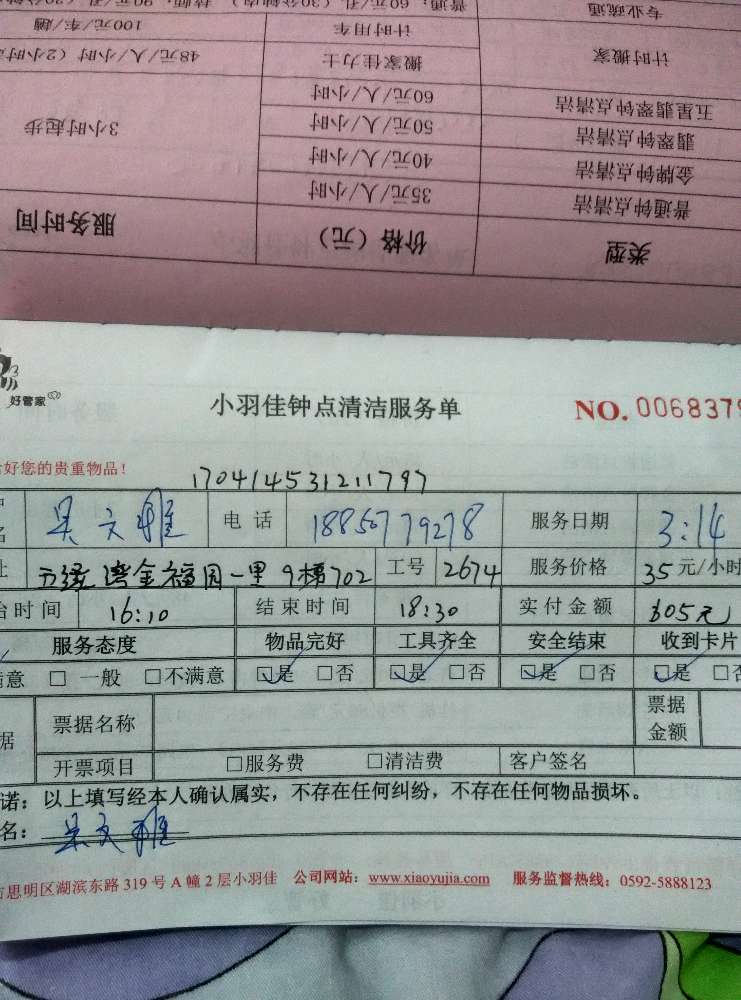 专业疏通 普通：60元/孔（30分钟内）
计时搬家 计时用车 100元/车/趟
搬家佳力士 48元/人/小时（2小时
五星翡翠钟点清洁 60元/人/小时 3小时起步
翡翠钟点清洁 50元/人/小时
金牌钟点清洁 40元/人/小时
普通钟点清洁 35元/人/小时
类型 价格（元） 服务时间
好管家
小羽佳钟点清洁服务单
NO. 0068379
好您的贵重物品！
170414531211797
名 吴文雅 电话 18850779278 服务日期 3:14
址 五缘湾金福园一里9梯702 工号 2674 服务价格 35元/小时
始时间 16:10 结束时间 18:30 实付金额 605元
服务态度 物品完好 工具齐全 安全结束 收到卡片
满意 □ 一般 □不满意 ☑是 □否 ☑是 □否 ☑是 □否 ☑是 □否
据 票据名称 票据金额
开票项目 □服务费 □清洁费 客户签名
诺：以上填写经本人确认属实，不存在任何纠纷，不存在任何物品损坏。
名：吴文雅
思明区湖滨东路319号A幢2层小羽佳 公司网站：www.xiaoyujia.com 服务监督热线：0592-5888123